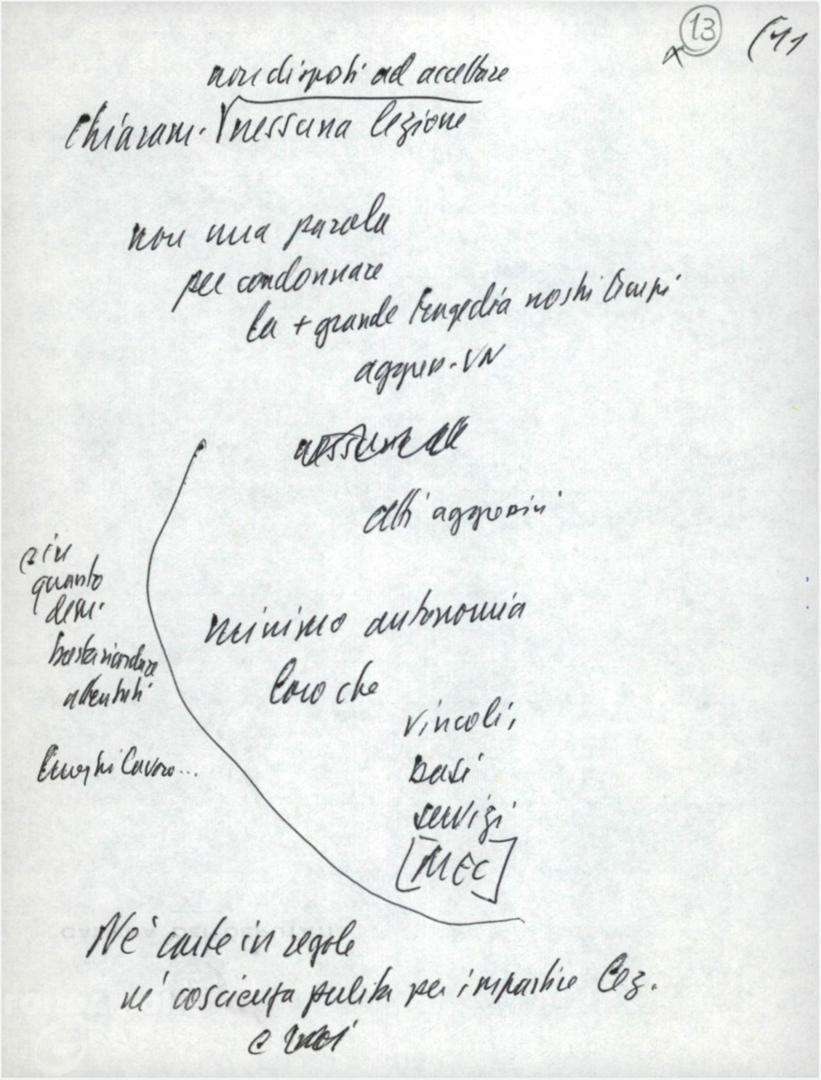 13 (11
non disposti ad accettare
Chiaram. nessuna lezione
non una parola
per condannare
la + grande tragedia nostri tempi
aggress. VN
altri aggressivi
e in
quanto
dem.
basta ricordare
attentati
minimo autonomia
loro che
vincoli,
basi
servizi
luoghi lavoro...
[MEC]
Né carte in regole
né coscienza pulita per impartire lez.
a noi